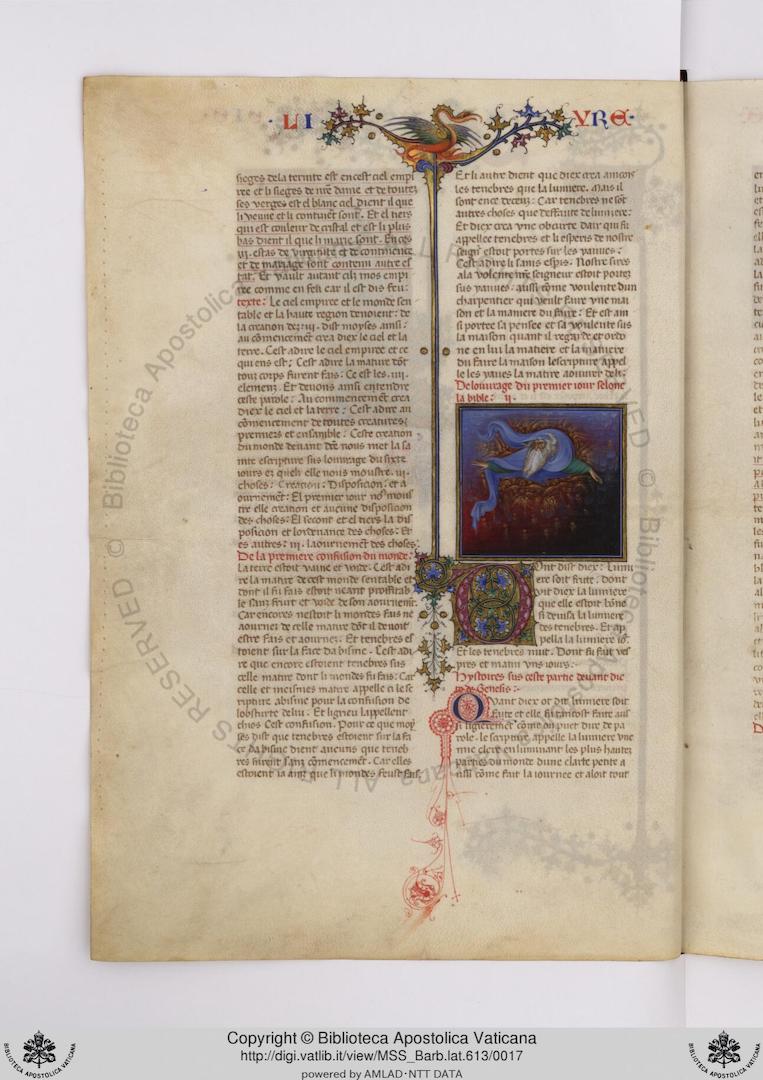 LI
VRE
sieges dela ternite est en cest ciel empi
ree et li sieges de nre dame et de toutes
ses verges est el blanc ciel dient il que
li veons et li contient sont. Et el tiers
qui est couleur de cristal et est li plus
bas dient il que li marie sont. En ces
iii. estas de virginite et de continence
et de mariage sont contenu autre es
tat. Et vault autant cilz mos empi
ree comme en feu car il est dis feu:
texte: Le ciel empiree et le monde sen
table et la haute region denoient: de
la creation dez. iii. dist moyses ainsi:
au comencemet crea diex le ciel et la
terre. Cest adire le ciel empiree et ce
qui ens est; Cest adire la matiere dot
touz corps furent fais: Ce est les. iiii.
elemens. Et devons ainsi entendre
ceste parole: Au commencemet crea
diex le ciel et la terre: Cest adire au
comencement de toutes creatures;
premiers et ensamble: Ceste creation
du monde devant dit nous met la sa
inte escripture sus louvrage du sixte
iours es quelz elle nous moustre. iii.
choses: Creation: Disposicion: et a
ournement: El premier iour nos mous
tre elle creation et aucune disposicion
des choses: El secont et el tiers la dis
posicion et lordenance des choses: Et
es autres: iii. laournemet des choses:
De la premiere confusion du monde:
La terre estoit vaine et vuide. Cest adi
re la matire de cest monde sentable et
dont il fu fais estoit neant proffitab
le sanz fruit et vuide de son aournemt.
Car encores nestoit li mondes fais ne
aournez de celle matire dot il devoit
estre fais et aournez: Et tenebres es
toient sur la face da bisme. Cest adi
re que encore estoient tenebres sus
celle matire dont li mondes fu fais: Car
celle et meismes matire appelle ci le sc
ripture abisme pour la confusion de
lobscurte delui. Et li grieu lappellent
chaos Cest confusion. Pour ce que moy
ses dist que tenebres estoient sur la fa
ce da bisme dient aucuns que teneb
res furent sanz comencemet. Car elles
estoient ia ains que li mondes feust fais
Et li autre dient que diex crea aincois
les tenebres que la lumiere. Mais il
sont en ce deceuz: Car tenebres ne sot
autres choses que deffaute de lumiere:
Et diex crea vne obscurte dair qui fu
appellee tenebres et li esperis de nostre
seignr estoit portes sur les yauues:
Cest adire li sains esperis. Nostre sires
a la volente nre seigneur estoit portez
sus yauues: aussi come voulente dun
charpentier qui veult faire vne mai
son et la maniere du faire: Et est ain
si portee sa pensee et sa voulente sus
la maison quant il regarde et ordo
ne en lui la matiere et la maniere
du faire la maison le scripture appel
le les yaues la matire aouurer delz:
De louvrage du premier iour selonc
la bible: ii.
Dont dist diex: Lumi
ere soit faite: dont
vit diex la lumiere
que elle estoit bone
si devisa la lumiere
des tenebres. Et ap
pella la lumiere ior.
Et les tenebres nuit. Dont fu fait ves
pres et matin vns iours:
Hystoires sus ceste partie devant dic
te de Genesis:
Quant diex ot dit lumiere soit
faite et elle fu tantost faite aus
si ligierement come on puet dire da pa
role. le scripture appelle la lumiere vne
nue clere enluminant les plus hautez
parties du monde dune clarte petite a
ussi come fait la iournee et aloit tout
Copyright © Biblioteca Apostolica Vaticana
http://digi.vatlib.it/view/MSS_Barb.lat.613/0017
powered by AMLAD·NTT DATA